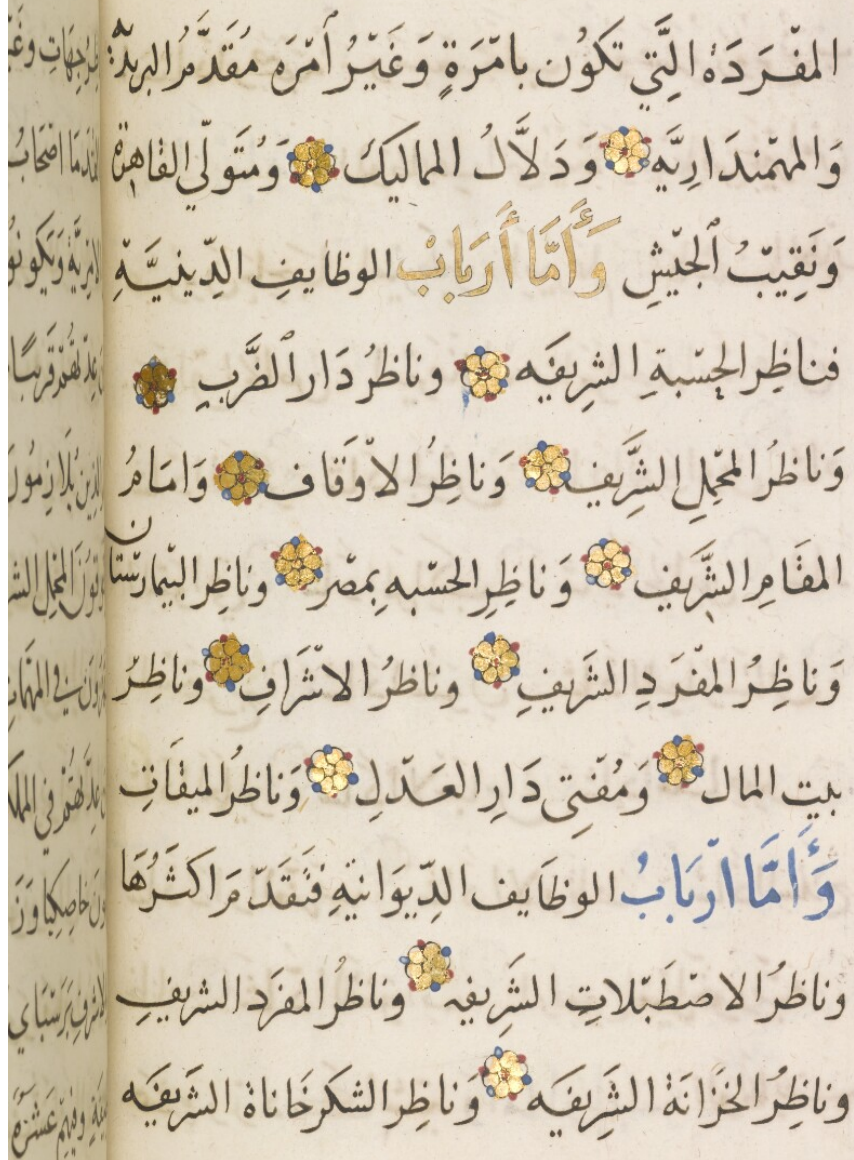 المفْرَدَة الَّتِي تكوُن بامْرَةٍ وَغَيْرُ أمْرَه مُقَدَّمُ البريديّه
وَالمهْمندَارِيَّه وَدَلاَّلُ المماليك وَمُتَولّي القاهِرة
وَنَقِيبُ ٱلجَيْشِ وَأَمَّا أَربَابْ الوظايفِ الدِّينيَّةِ
فناظِر الحِسْبةِ الشرِيفَيه وناظرُ دَار ٱلضَّربِ
وَناظرُ المحْمِلِ الشَّرِيفِ وَناظِرُ الاوْقَاف وَامَامُ
المقَامِ الشَّرِيف وَناظِرِ الحسْبه بِمصْر وناظِر البيمارسْتان
وَناظِرُ المفْرَدِ الشَريفِ وناظرُ الاشْرَافِ وناظِرْ
بيتِ المال وَمُفْتِى دَارِ العَدْلِ وَناظرُ الميقَاتِ
وَأَمَّا ارْبَابُ الوظَايف الدِّيوَانيّةِ فتَقَدّمَ اكثَرُهَا
وناظرُ الاصْطَبْلاتِ الشَرِيفيه وناظرُ المفرَد الشريفِ
وناظِرُ الخزَانَة الشَرِيفَيه وَناظِر الشكرخَاناة الشَرِيفَيه